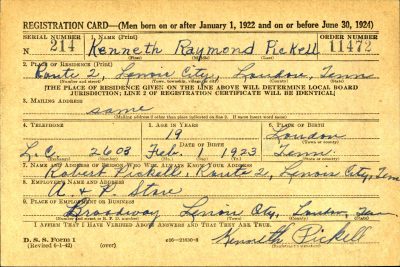 REGISTRATION CARD—(Men born on or after January 1, 1922 and on or before June 30, 1924)
SERIAL NUMBER 1. NAME (Print) ORDER NUMBER
214 Kenneth Raymond Pickell 11472
(First) (Middle) (Last)
2. PLACE OF RESIDENCE (Print)
Route 2, Lenoir City, Loudon, Tenn
[THE PLACE OF RESIDENCE GIVEN ON THE LINE ABOVE WILL DETERMINE LOCAL BOARD
JURISDICTION; LINE 2 OF REGISTRATION CERTIFICATE WILL BE IDENTICAL]
3. MAILING ADDRESS
same
(Mailing address if other than place indicated on line 2. If same insert word same)
4. TELEPHONE 5. AGE IN YEARS 6. PLACE OF BIRTH
19 Loudon
DATE OF BIRTH (Town or county)
L.C. 2603 Feb. 1 1923 Tenn.
(Exchange) (Number) (Mo.) (Day) (Yr.) (State or country)
7. NAME AND ADDRESS OF PERSON WHO WILL ALWAYS KNOW YOUR ADDRESS
Robert Pickell, Route 2, Lenoir City, Tenn
8. EMPLOYER'S NAME AND ADDRESS
A & P Store
9. PLACE OF EMPLOYMENT OR BUSINESS
Broadway Lenoir City, Loudon, Tenn
(Number and street or R. F. D. number) (Town) (County) (State)
I AFFIRM THAT I HAVE VERIFIED ABOVE ANSWERS AND THAT THEY ARE TRUE.
D. S. S. Form 1
(Revised 6-1-42) (over) c16—21630-2 Kenneth Pickell
(Registrant's signature)